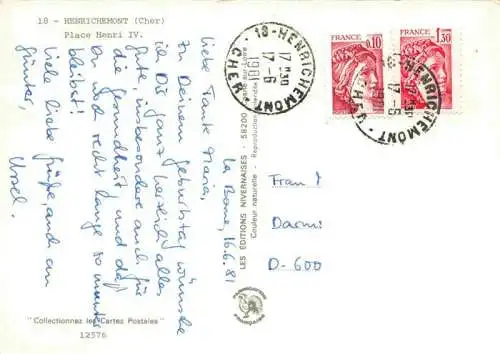 18 - HENRICHEMONT (Cher)
Place Henri IV.
La Borne, 16.6.81
Liebe Tante Maria,
zu Deinem Geburtstag wünsche
ich Dir ganz herzlich alles
Gute, insbesondere auch für
die Gesundheit und daß
Du noch recht lange so munter
bleibst!
Viele liebe Grüße, auch an
Günter,
Ursel.
"Collectionnez les Cartes Postales"
12576
LES ÉDITIONS NIVERNAISES - 58200
Couleur naturelle - Reproduction
FRANCE
0,10
FRANCE
1,30
18 - HENRICHEMONT
CHER
17 H30
17 - 6
1981
18 - HENRICHEMONT
CHER
17 H30
17 - 6
1981
Frau
Darm
D-600